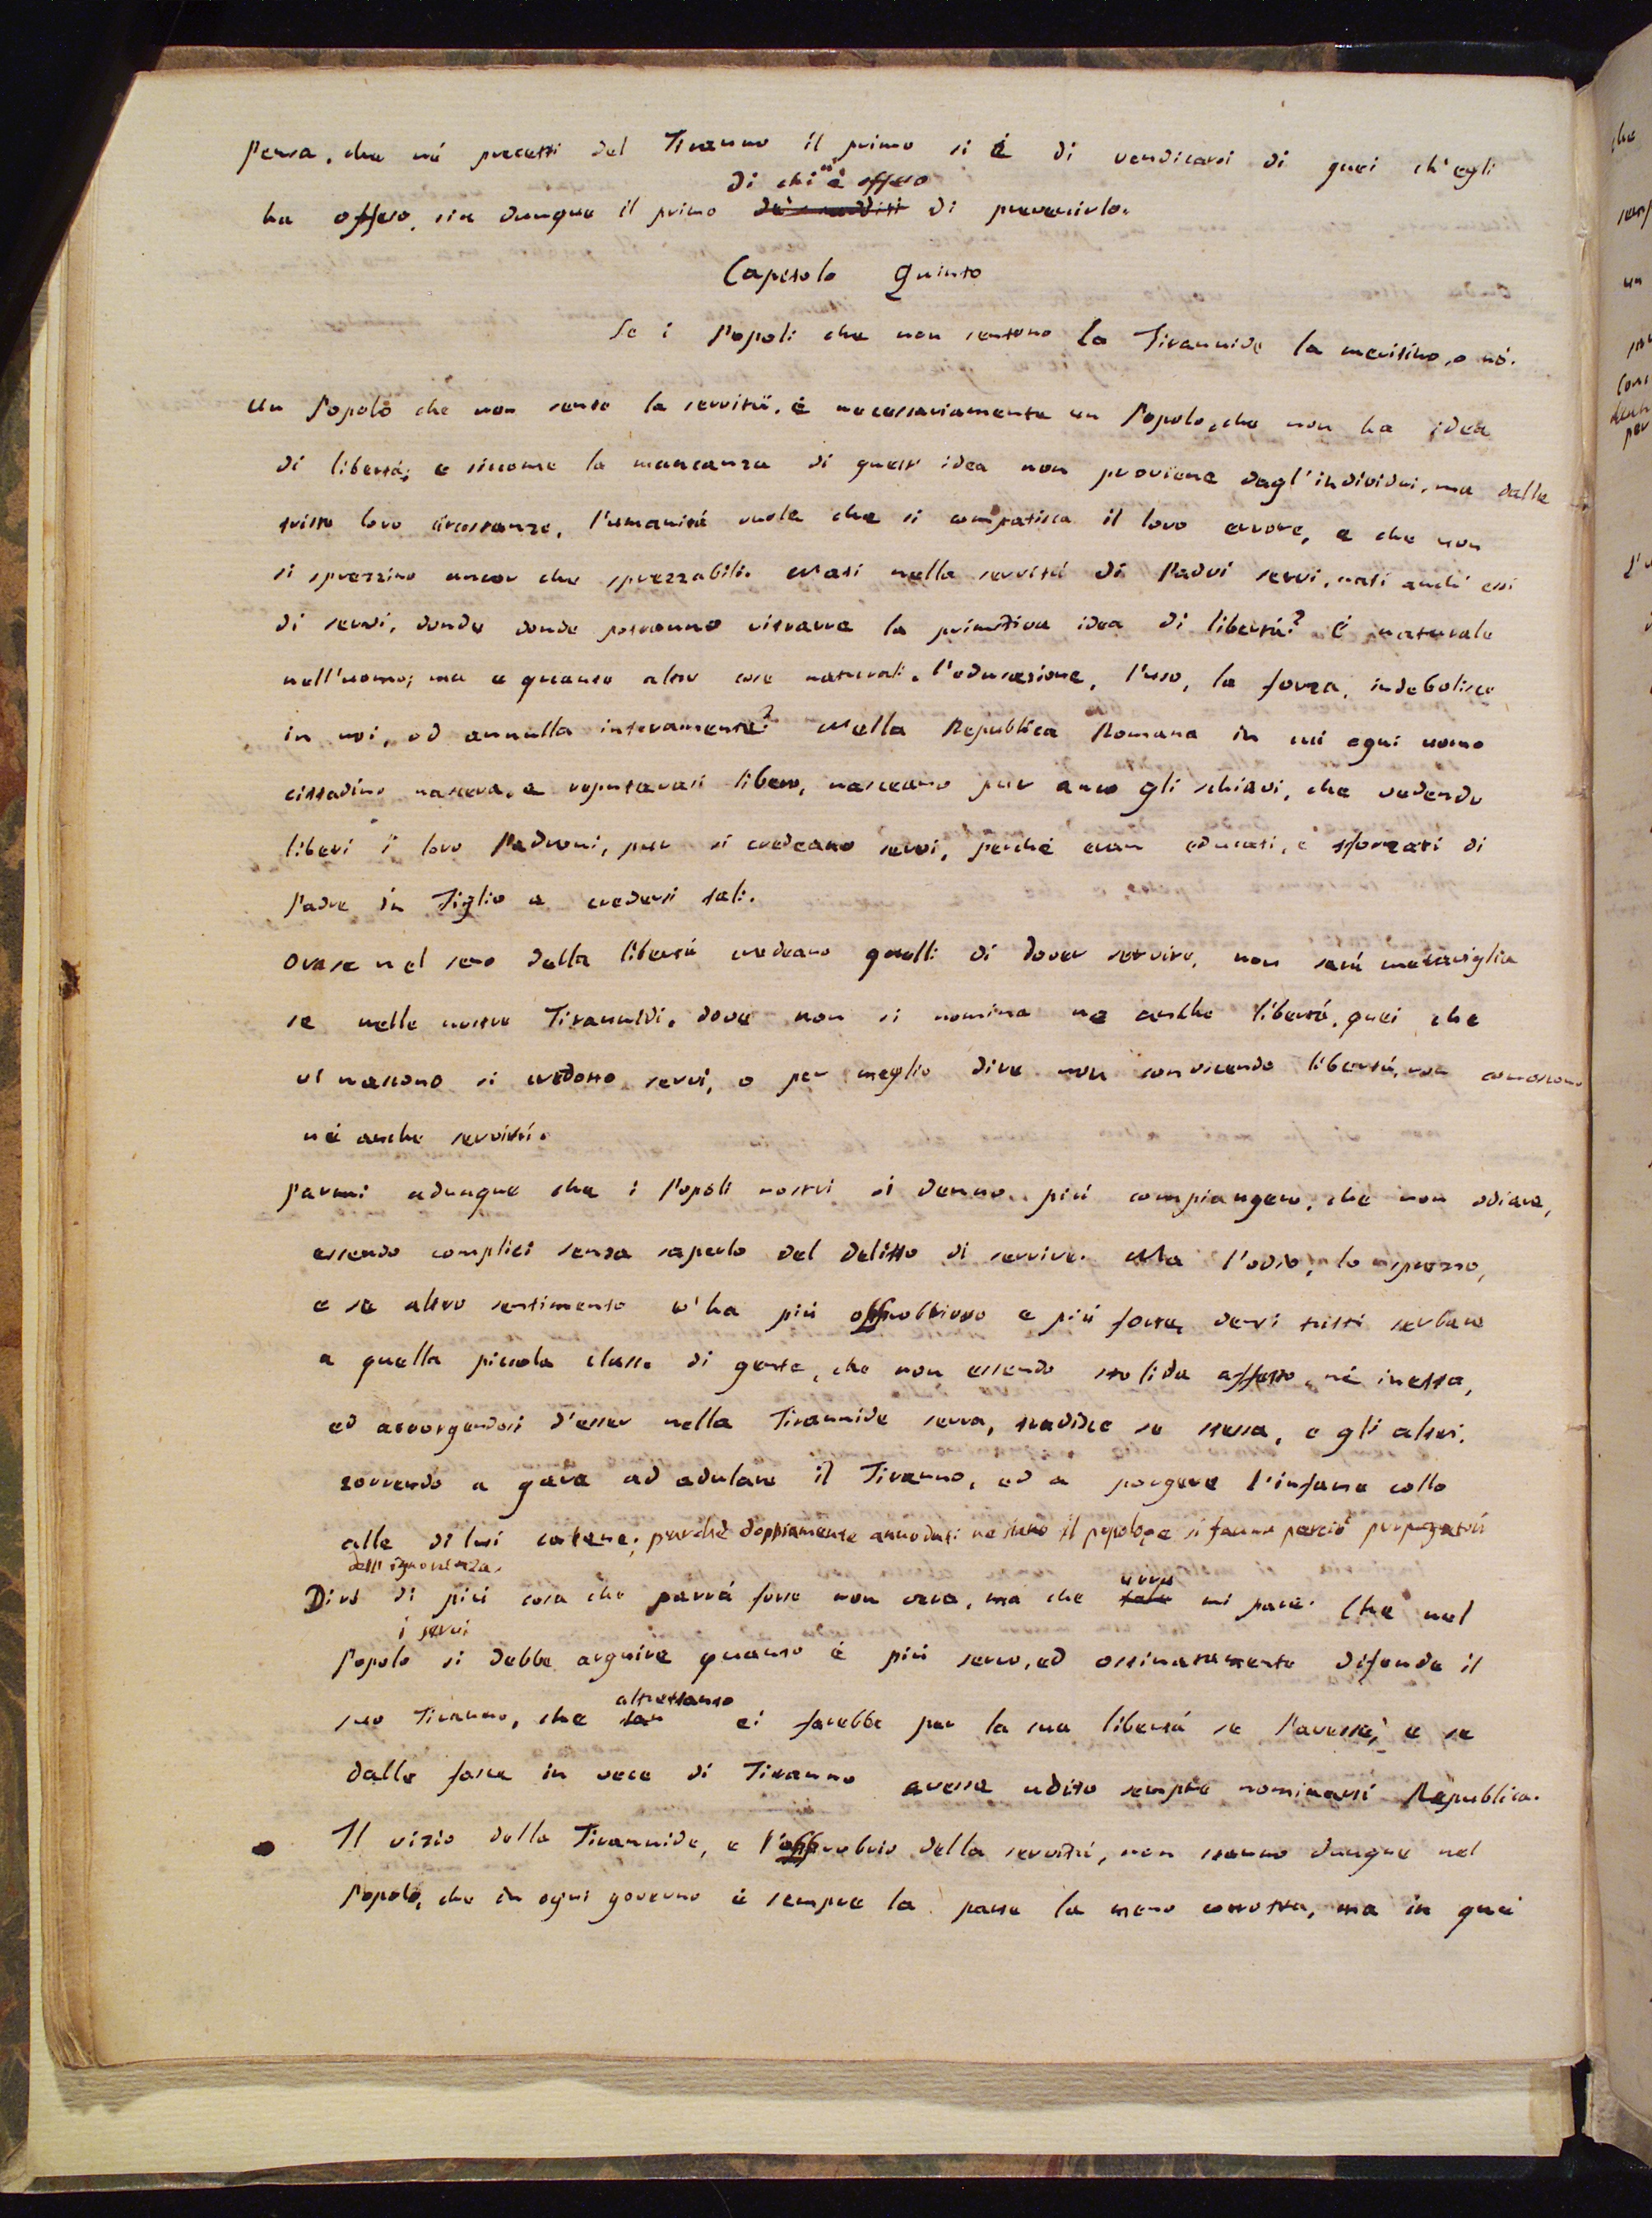 Pensa, che né precetti del Tiranno il primo si é di vendicarsi di quei ch'egli
di chi n'é offeso
ha offeso, sia dunque il primo di prevenirlo.
Capitolo Quinto
Se i Popoli che non sentono la Tirannide la meritino, o nó.
Un Popolo che non sente la servitú, é necessariamente un Popolo, che non ha idea
di libertá; e siccome la mancanza di quest' idea non proviene dagl'individui, ma dalle
triste loro circostanze, l'umanitá vuole che si compatisca il loro errore, e che non
si sprezzino ancor che sprezzabili. Nati nella servitú di Padri servi, nati anch' essi
di servi, donde donde potranno ritrarre la primitiva idea di libertá? É naturale
nell'uomo; ma e quante altre cose naturali, l'educazione, l'uso, la forza, indebolisce
in noi, od annulla interamente? Nella Republica Romana in cui ogni uomo
cittadino nasceva, e reputavasi libero, nasceano pur anco gli schiavi, che vedendo
liberi i loro Padroni, pur si credeano servi, perché eran educati, e sforzati di
Padre in Figlio a credersi tali.
Ora se nel seno della libertá credeano quelli di dover servire, non sará meraviglia
se nelle nostre Tirannidi, dove non si nomina ne anche libertá, quei che
vi nascono si credono servi, o per meglio dire non conoscendo libertá, non conoscono
né anche servitú.
Parmi adunque che i Popoli nostri si denno piú compiangere, che non odiare,
essendo complici senza saperlo del delitto di servire. Ma l'odio, lo sprezzo,
e se altro sentimento v'ha piú obbrobrioso e piú forte, densi tutti serbare
a quella piccola classe di gente, che non essendo stolida affatto, né inetta,
ed accorgendosi d'esser nella Tirannide serva, tradisce se stessa, e gli altri,
correndo a gara ad adulare il Tiranno, ed a porgere l'infame collo
alle di lui catene; purché doppiamente annodati ne siano il popolo, e si fanno perció propagatori
dell'ignoranza.
Diró di piú cosa che parrá forse non vera, ma che tale mi pare. Che nel
vera
i servi
Popolo si debbe arguire quanto é piú servo, ed ostinatamente difende il
altrettanto
suo Tiranno, che tan ei farebbe per la sua libertá se l'avesse, e se
dalle fasce in vece di Tiranno avesse udito sempre nominarsi Republica.
Il vizio della Tirannide, e l'obbrobrio della servitú, non stanno dunque nel
Popolo, che in ogni governo é sempre la parte la meno corrotta, ma in quei